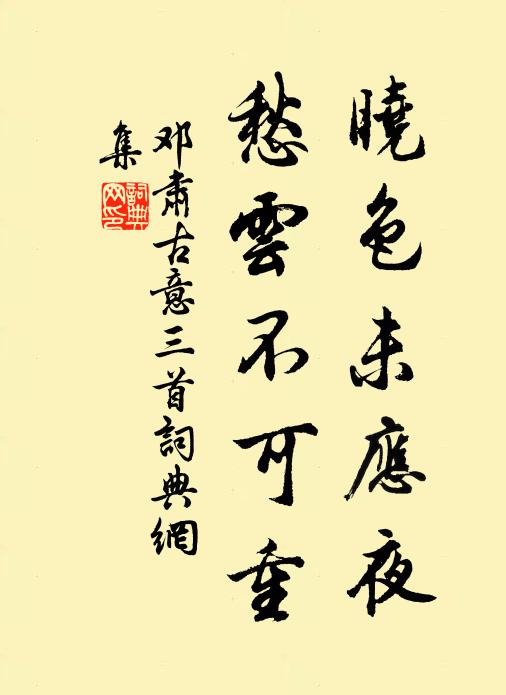 曉色未應夜
愁雲不可重
邓肅古意三首詞典網
集
詞典
网印